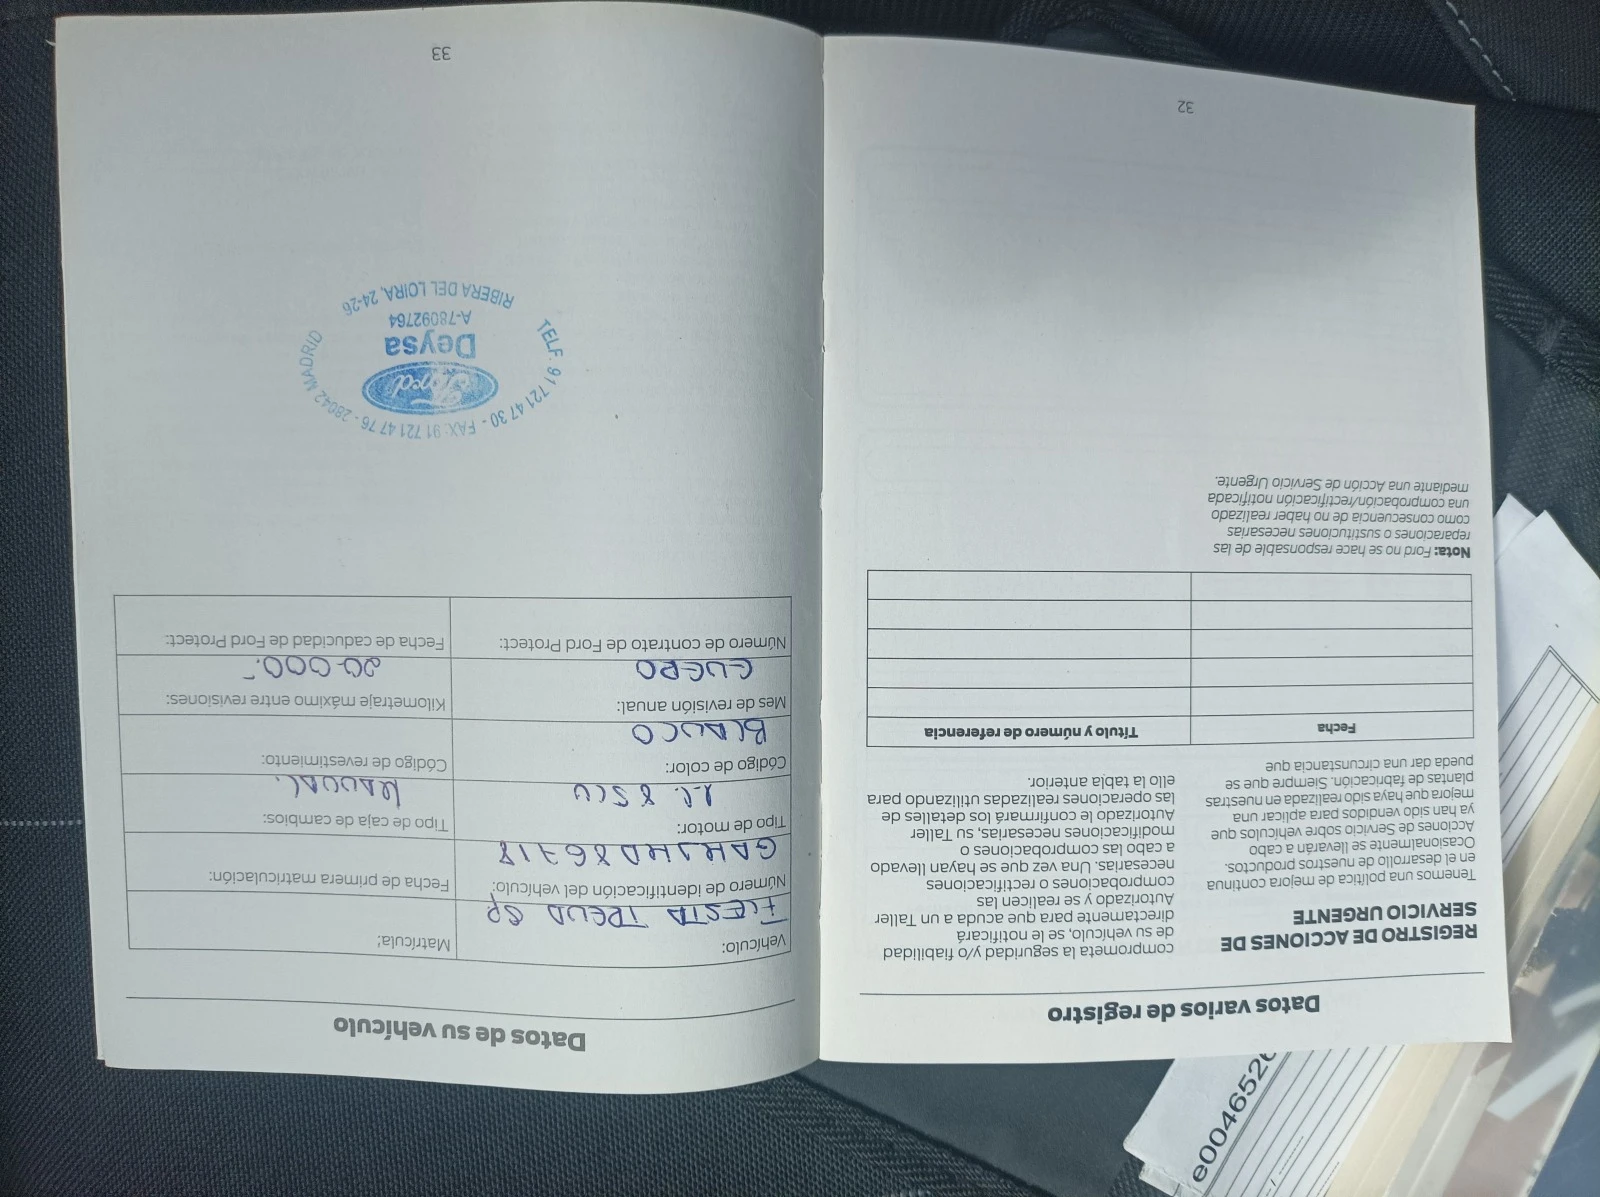 Datos varios de registro
REGISTRO DE ACCIONES DE
SERVICIO URGENTE
Tenemos una política de mejora continua
en el desarrollo de nuestros productos.
Ocasionalmente se llevarán a cabo
Acciones de Servicio sobre vehículos que
ya han sido vendidos para aplicar una
mejora que haya sido realizada en nuestras
plantas de fabricación. Siempre que se
pueda dar una circunstancia que
comprometa la seguridad y/o fiabilidad
de su vehículo, se le notificará
directamente para que acuda a un Taller
Autorizado y se realicen las
comprobaciones o rectificaciones
necesarias. Una vez que se hayan llevado
a cabo las comprobaciones o
modificaciones necesarias, su Taller
Autorizado le confirmará los detalles de
las operaciones realizadas utilizando para
ello la tabla anterior.
Fecha
Título y número de referencia
Nota: Ford no se hace responsable de las
reparaciones o sustituciones necesarias
como consecuencia de no haber realizado
una comprobación/rectificación notificada
mediante una Acción de Servicio Urgente.
32
Datos de su vehículo
Vehículo:
FIESTA TREND 5P
Matrícula:
Número de identificación del vehículo:
Fecha de primera matriculación:
Tipo de motor:
Tipo de caja de cambios:
MANUAL.
Código de color:
BLANCO
Código de revestimiento:
Mes de revisión anual:
ENERO
Kilometraje máximo entre revisiones:
20.000.-
Número de contrato de Ford Protect:
Fecha de caducidad de Ford Protect:
TELF. 91 721 47 30 - FAX: 91 721 47 76 - 28042 MADRID
Ford
Deysa
A-78092764
RIBERA DEL LOIRA, 24-26
33